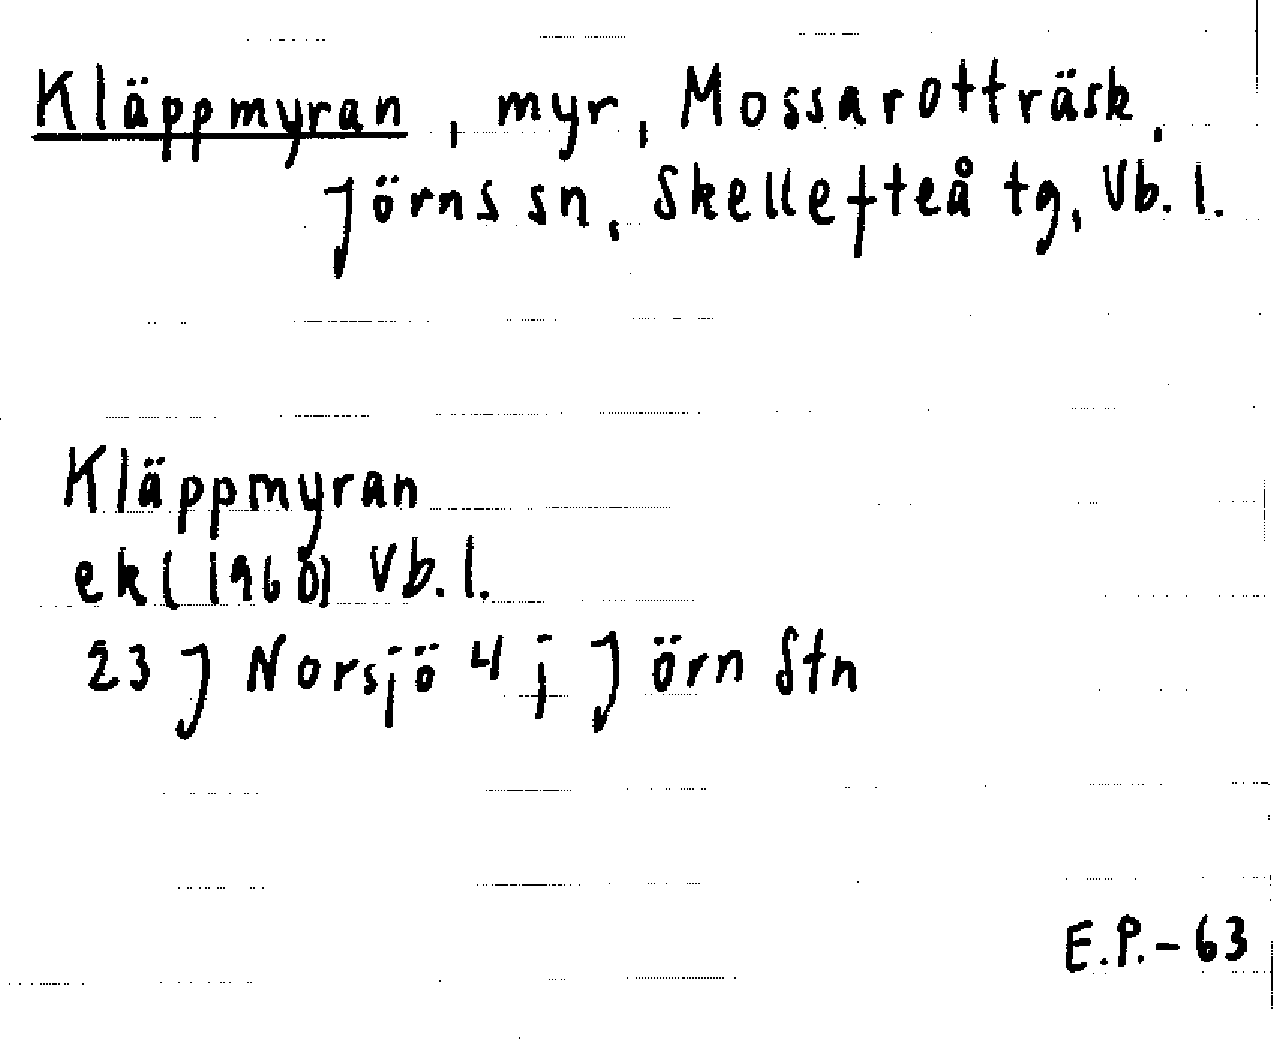 Kläppmyran, myr, Mossarotträsk,
Jörns sn, Skellefteå tg, Vb. l.
Kläppmyran
ek (1960) Vb. l.
23 J Norsjö 4 j; Jörn Stn
E.P.-63